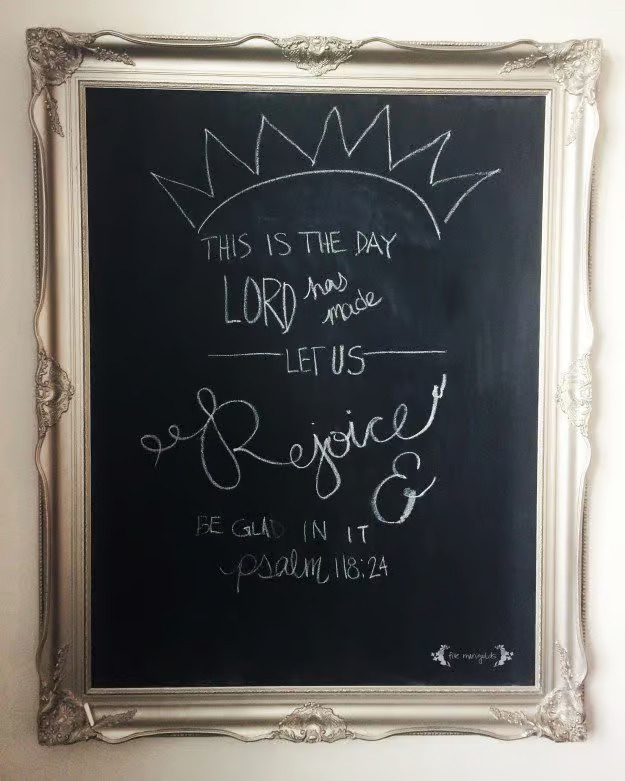 THIS IS THE DAY
LORD has made
LET US
Rejoice
&
BE GLAD IN IT
psalm 118:24
five marigolds